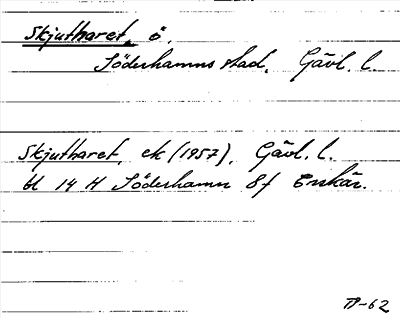 Skjutharet, ö.
Söderhamns stad, Gävl. l.
Skjutharet, ek (1957), Gävl. l.
bl 14 H Söderhamn 8f Enskär.
TP-62